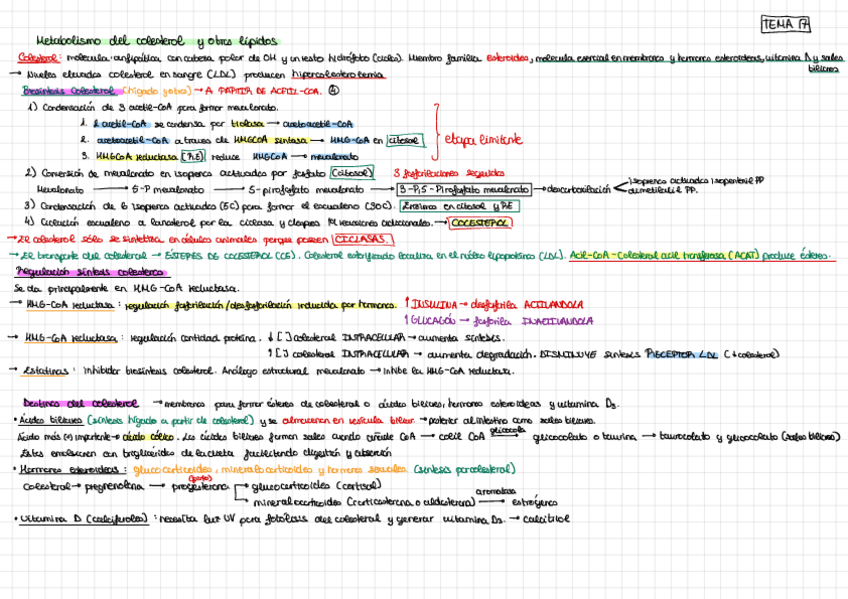 TEMA 17
Metabolismo del colesterol y otros lípidos
Colesterol: molécula anfipática con cabeza polar de OH y un resto hidrófobo (ciclos). Miembro familia esteroides, molécula esencial en membranas y hormonas esteroideas, vitamina D y sales biliares
→ Niveles elevados colesterol en sangre (LDL) producen hipercolesterolemia
Biosíntesis Colesterol (hígado y otros) → A PARTIR DE ACETIL-COA. ④
1) Condensación de 3 acetil-CoA para formar mevalonato.
1. 2 acetil-CoA se condensa por tiolasa → acetoacetil-CoA
2. acetoacetil-CoA a traves de HMGCOA sintasa → HMG-CoA en citosol
3. HMGCoA reductasa (RE) reduce HMGCoA → mevalonato
etapa limitante
2) Conversión de mevalonato en isopreno activados por fosfato (citosol) 3 fosforilaciones seguidas
Mevalonato → 5-P mevalonato → 5-pirofosfato mevalonato → 3-P,5-Pirofosfato mevalonato → descarboxilación isoprenos activados isopentenil PP
dimetilalil PP.
3) Condensación de 6 isopreno activados (5C) para formar el escualeno (30C). Enzimas en citosol y RE
4) Ciclación escualeno a lanosterol por la ciclasa y después reacciones adicionales. → COLESTEROL
→ El colesterol sólo se sintetiza en células animales porque poseen CICLASAS.
→ El transporte del colesterol → ESTERES DE COLESTEROL (CE). Colesterol esterificado localiza en el núcleo lipoproteína (LDL). Acil-COA-Colesterol acil transferasa (ACAT) produce ésteres.
Regulación síntesis colesterol
Se da principalmente en HMG-CoA reductasa.
→ HMG-CoA reductasa: regulación fosforilación/desfosforilación inducida por hormonas. ↑ INSULINA → desfosforila ACTIVANDOLA
↑ GLUCAGÓN → fosforila INACTIVANDOLA
→ HMG-CoA reductasa: regulación cantidad proteína. ↓ [ ] colesterol INTRACELULAR → aumenta síntesis.
↑ [ ] colesterol INTRACELULAR → aumenta degradación. DISMINUYE síntesis RECEPTOR LDL (↓ colesterol)
→ Estatinas: inhibidor biosíntesis colesterol. Análogo estructural mevalonato → inhibe la HMG-CoA reductasa.
Destinos del colesterol → membranas para formar ésteres de colesterol o ácidos biliares, hormonas esteroideas y vitamina D3.
• Ácidos biliares (síntesis hígado a partir de colesterol) y se almacenan en vesícula biliar → posterior al intestino como sales biliares.
Ácido más (+) importante → ácido cólico. Los ácidos biliares forman sales cuando añade CoA → colil CoA glicocola → glicocolato o taurina → taurocolato y glicocolato (sales biliares)
Estas emulsionan con triglicéridos de la dieta facilitando digestión y absorción
• Hormonas esteroideas: glucocorticoides, mineralocorticoides y hormonas sexuales. (síntesis por colesterol)
Colesterol → pregnenolona → progesterona → glucocorticoides (cortisol)
mineralocorticoides (corticosterona o aldosterona) aromatasa → estrógenos
• Vitamina D (calciferoles): necesita luz UV para fotólisis del colesterol y generar vitamina D3. → calcitriol